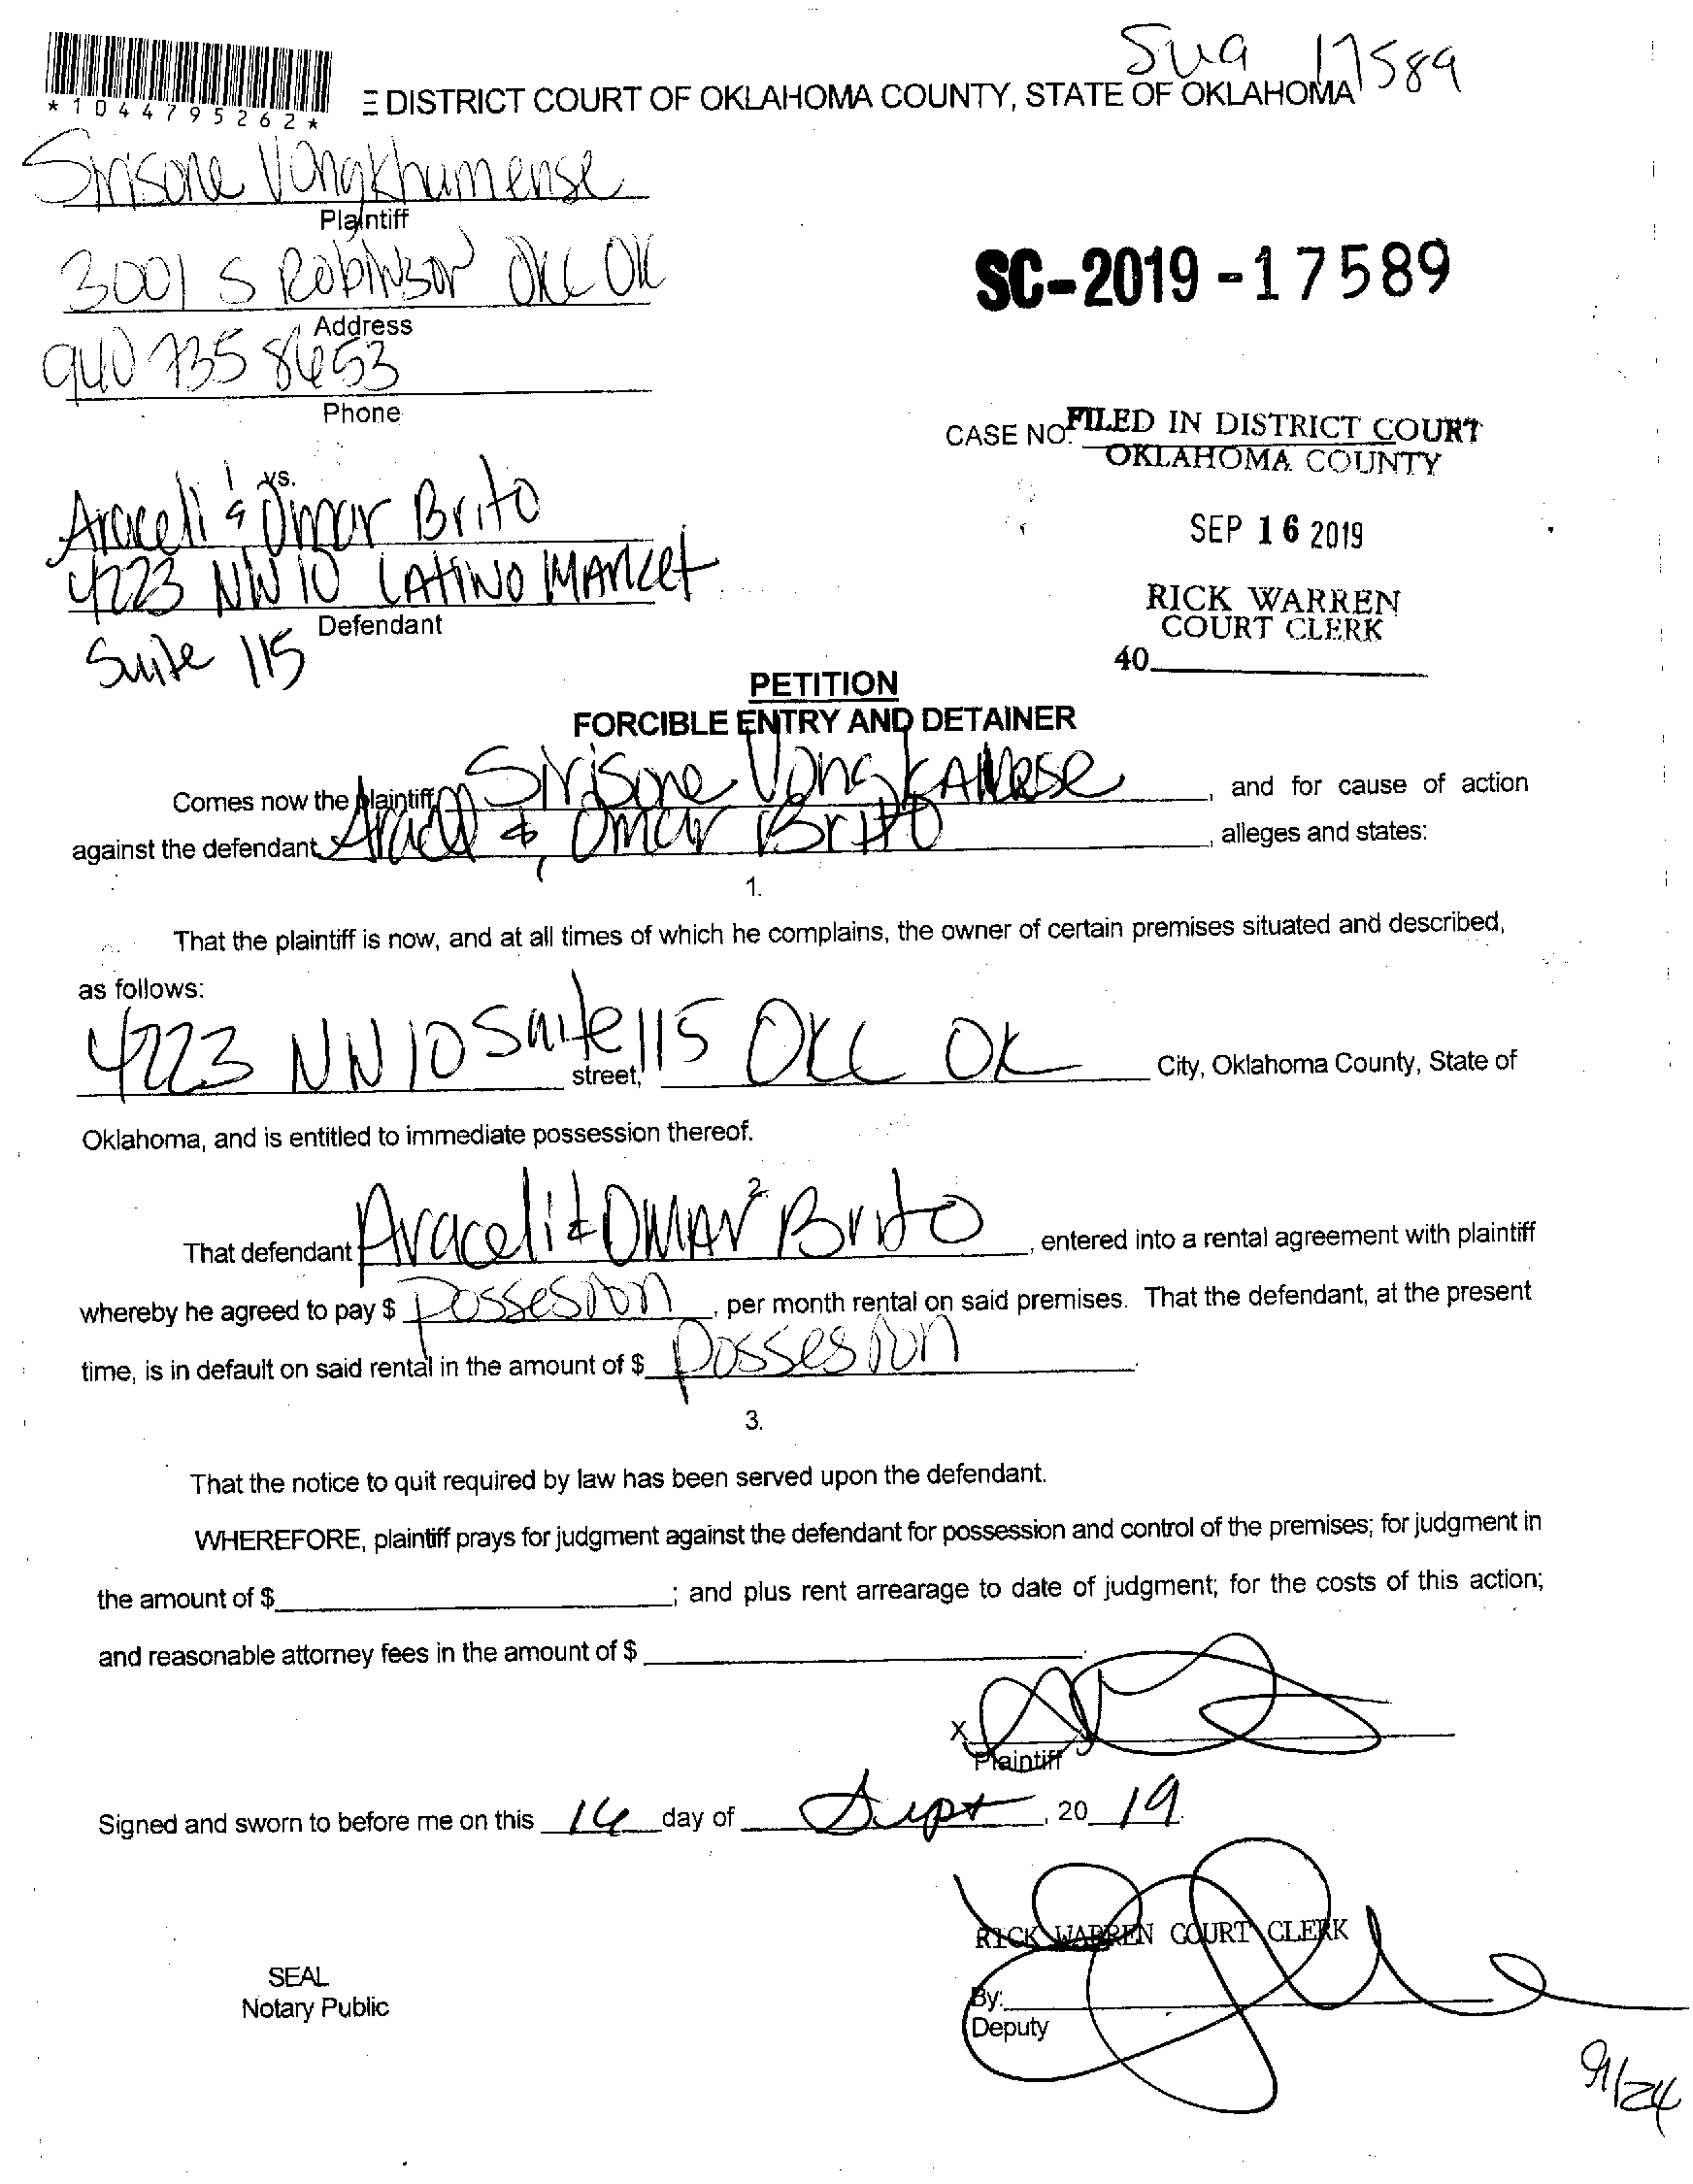 Sua 17589
*1044795262*
E DISTRICT COURT OF OKLAHOMA COUNTY, STATE OF OKLAHOMA
Sirisone Vongkhamense
Plaintiff
3001 S Robinson OKC OK
Address
SC-2019-17589
940 735 8653
Phone
CASE NO. FILED IN DISTRICT COURT
OKLAHOMA COUNTY
vs.
Araceli & Omar Brito
SEP 16 2019
4223 NW 10 LAtiNO MArket
Defendant
RICK WARREN
COURT CLERK
Suite 115
40
PETITION
FORCIBLE ENTRY AND DETAINER
Comes now the plaintiff, Sirisone Vongkamese, and for cause of action
against the defendant, Araceli & Omar Brito, alleges and states:
1.
That the plaintiff is now, and at all times of which he complains, the owner of certain premises situated and described,
as follows:
4223 NW 10 Suite 115 OKC OK City, Oklahoma County, State of
street,
Oklahoma, and is entitled to immediate possession thereof.
2.
That defendant Araceli & OMAr Brito, entered into a rental agreement with plaintiff
whereby he agreed to pay $ Possesion, per month rental on said premises. That the defendant, at the present
time, is in default on said rental in the amount of $ Possesion.
3.
That the notice to quit required by law has been served upon the defendant.
WHEREFORE, plaintiff prays for judgment against the defendant for possession and control of the premises; for judgment in
the amount of $ ; and plus rent arrearage to date of judgment; for the costs of this action;
and reasonable attorney fees in the amount of $
X
Plaintiff
Signed and sworn to before me on this 16 day of Sept, 2019.
RICK WARREN COURT CLERK
SEAL
Notary Public
By:
Deputy
9/24